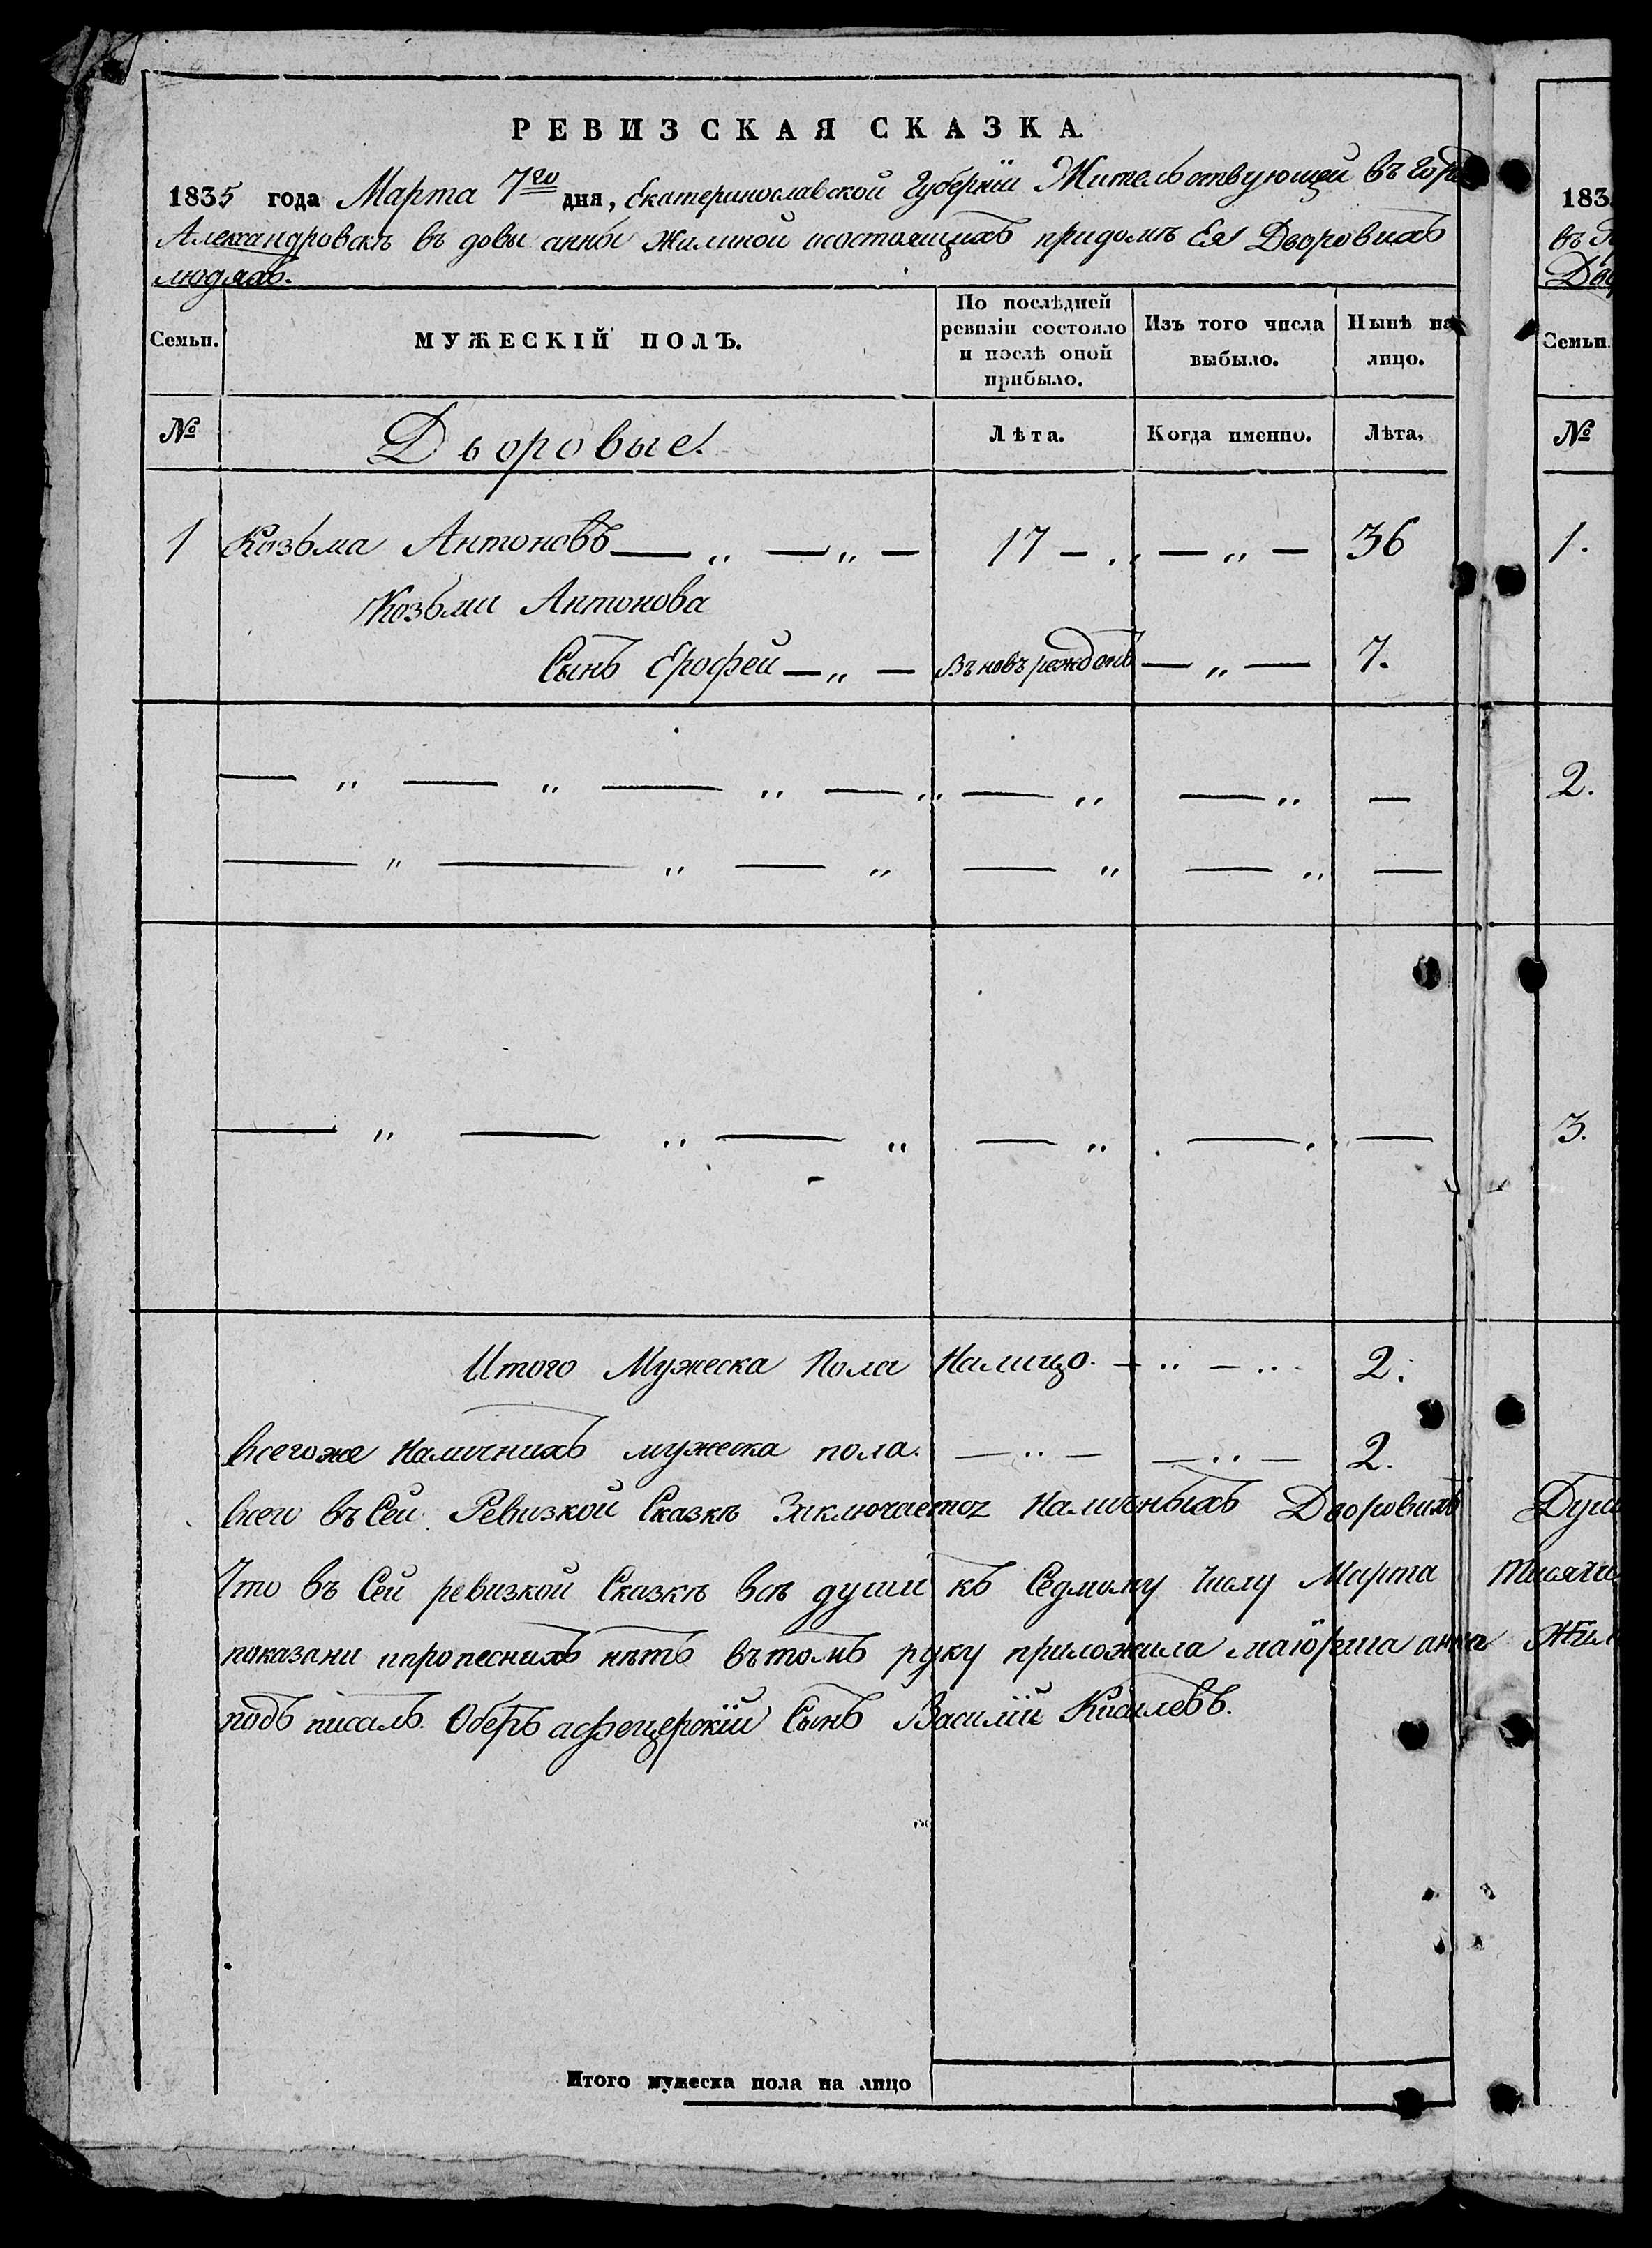 РЕВИЗСКАЯ СКАЗКА.
1835 года Марта 7го дня, Екатеринославской Губерніи Жительствующей въ горо
Александровскъ въ довы анны Жилиной осостоящихъ придомъ Ея Дворовихъ
людяхъ.
Семьи. МУЖЕСКІЙ ПОЛЪ. По послѣдней ревизіи состояло и послѣ оной прибыло. Изъ того числа выбыло. Нынѣ на лицо.
№ Дворовые. Лѣта. Когда именно. Лѣта.
1 Козьма Антоновъ — „ — „ — 17 — „ — „ — 36
Козьми Антонова
Сынъ Ерофей — „ — Въновъ рождонъ — „ — 7.
Итого Мужеска Пола Налицо. 2.
Всегоже Наличнихъ мужеска пола. 2.
Всего въ Сей Ревизкой Сказкъ Заключается Наличныхъ Дворовихъ
Что въ Сей ревизкой Сказкъ всъ души къ Седмому Числу Марта
показани ипрописнихъ нѣтъ вътомъ руку приложила маіорша анна
подъ писалъ. Оберъ афецерскій Сынъ Василій Киселевъ.
Итого мужеска пола на лицо
183
въ
Семьи.
№
1.
2.
3.